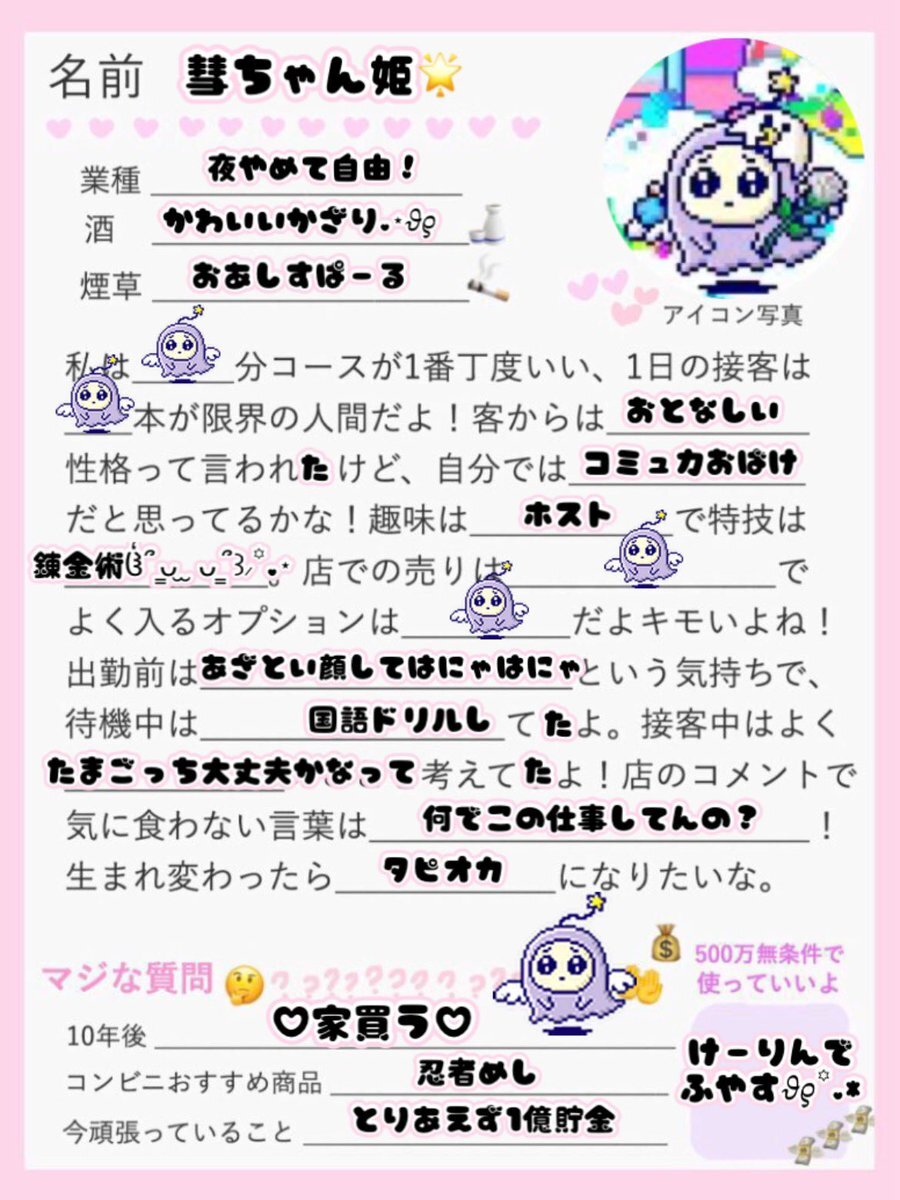 名前 彗ちゃん姫🌟
業種 夜やめて自由！
酒 かわいいかざり
煙草 おあしすぱーる
アイコン写真
私は 分コースが1番丁度いい、1日の接客は
本が限界の人間だよ！客からは おとなしい
性格って言われたけど、自分では コミュカおばけ
だと思ってるかな！趣味は ホスト で特技は
錬金術 店での売りは で
よく入るオプションは だよキモいよね！
出勤前は あざとい顔してはにゃはにゃ という気持ちで、
待機中は 国語ドリルし てたよ。接客中はよく
たまごっち大丈夫かなって 考えてたよ！店のコメントで
気に食わない言葉は 何でこの仕事してんの？ ！
生まれ変わったら タピオカ になりたいな。
マジな質問🤔???????????
10年後 ♡家買う♡
コンビニおすすめ商品 忍者めし
今頑張っていること とりあえず1億貯金
500万無条件で
使っていいよ
けーりんで
ふやす